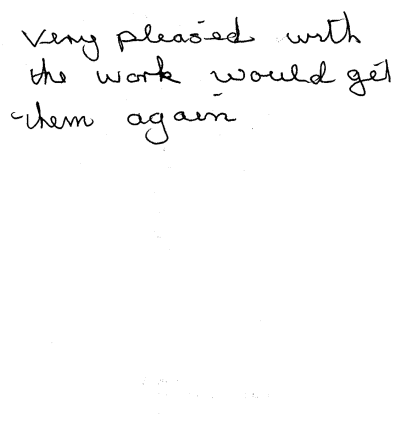 Very pleased with
the work would get
them again